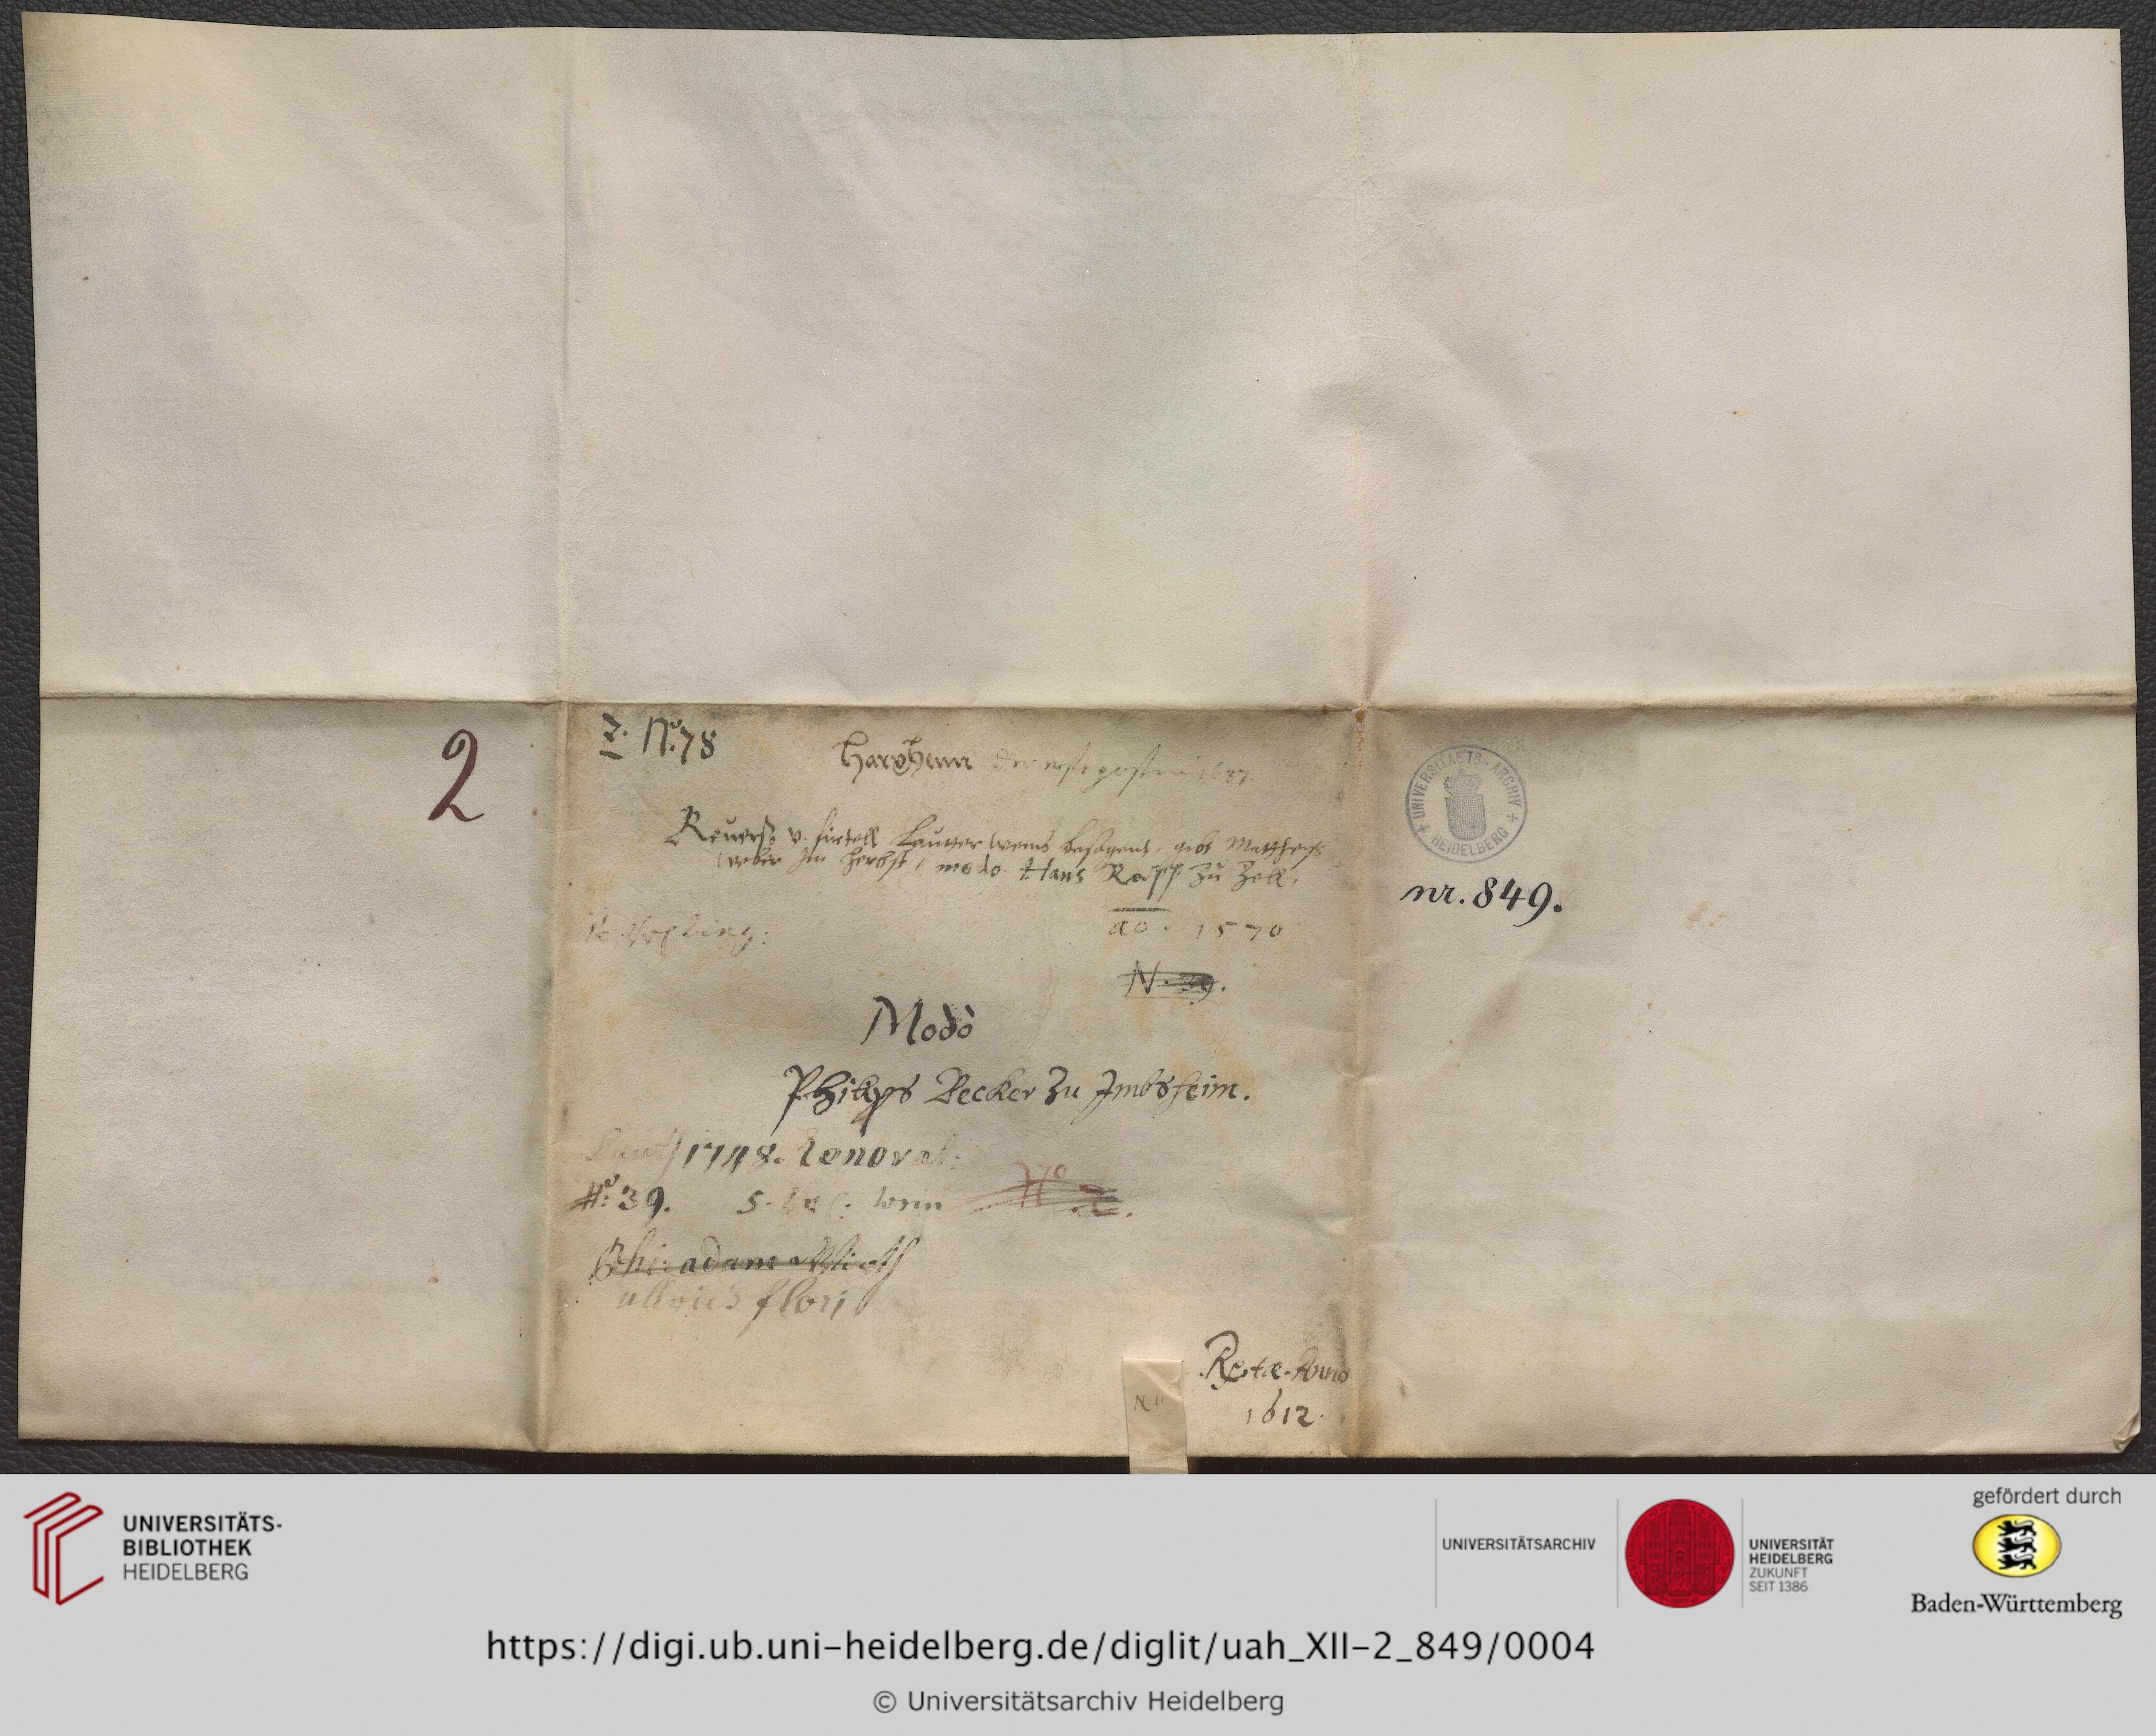 2
Z. No. 78
Harxheim
Reuerß v. firtell Lautter weins besagend, gibt Mattheiß
weber im herbst, modo Hans Rapp zu Zell.
ao. 1570
N. 39.
Modò
Philips Becker zu Imbsheim.
1748. renovat:
No: 39. 5. wein
Phi: adam Wirth
ullrich flori
Anno
1612.
N
UNIVERSITAETS-ARCHIV
HEIDELBERG
nr. 849.
UNIVERSITÄTS-
BIBLIOTHEK
HEIDELBERG
UNIVERSITÄTSARCHIV
UNIVERSITÄT
HEIDELBERG
ZUKUNFT
SEIT 1386
gefördert durch
Baden-Württemberg
https://digi.ub.uni-heidelberg.de/diglit/uah_XII-2_849/0004
© Universitätsarchiv Heidelberg